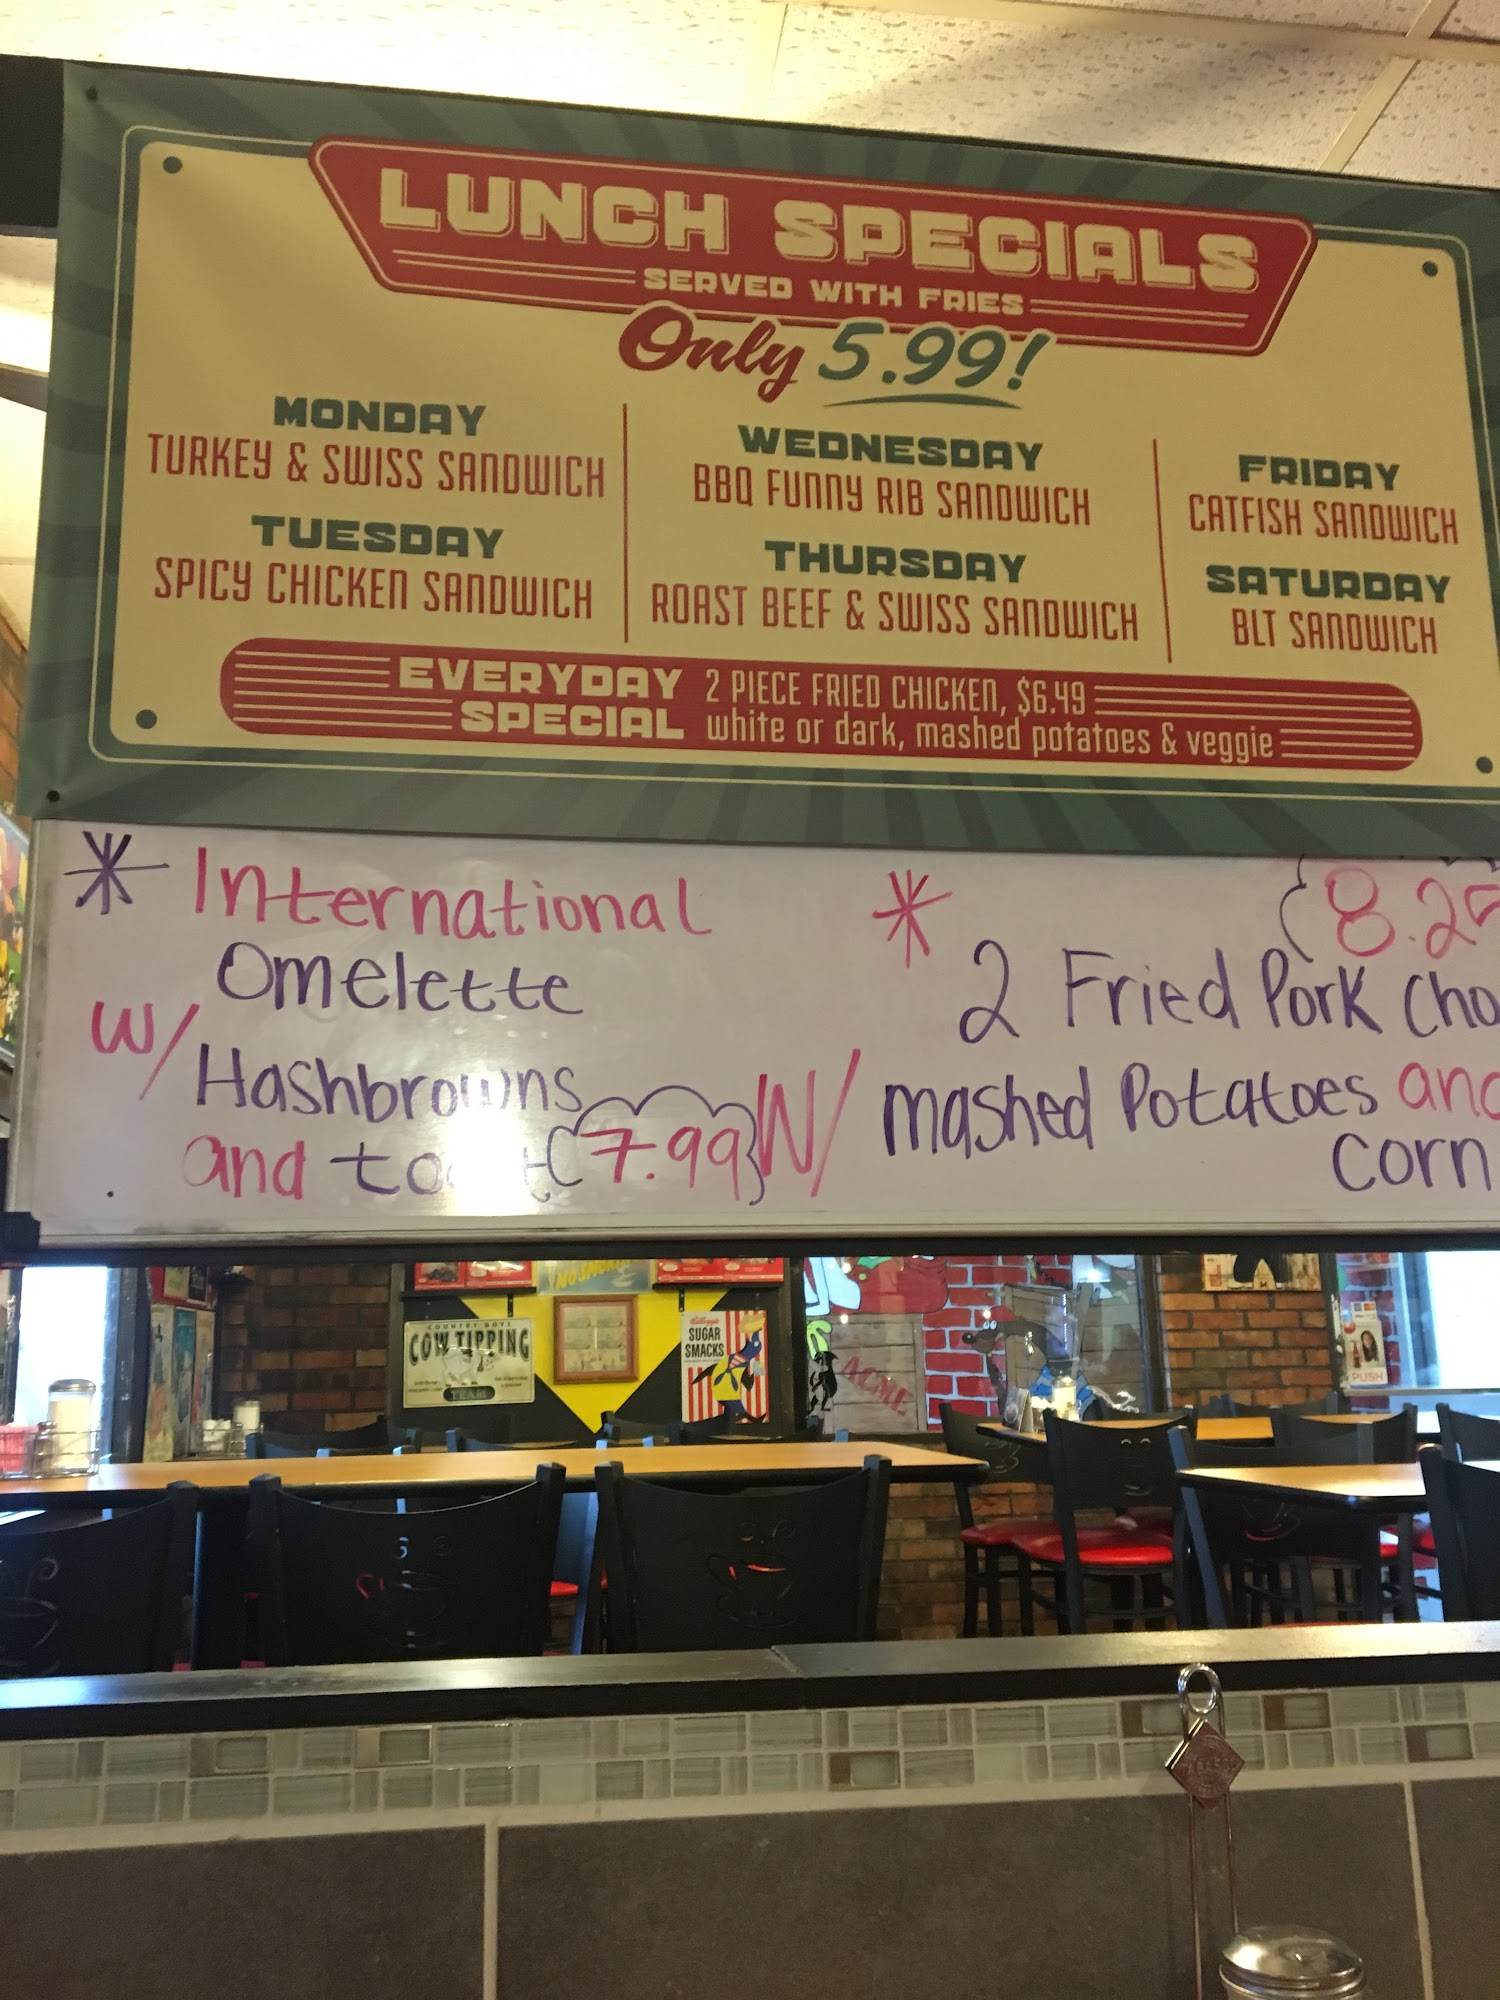 LUNCH SPECIALS
SERVED WITH FRIES
Only 5.99!
MONDAY
TURKEY & SWISS SANDWICH
TUESDAY
SPICY CHICKEN SANDWICH
WEDNESDAY
BBQ FUNNY RIB SANDWICH
THURSDAY
ROAST BEEF & SWISS SANDWICH
FRIDAY
CATFISH SANDWICH
SATURDAY
BLT SANDWICH
EVERYDAY SPECIAL
2 PIECE FRIED CHICKEN, $6.49
white or dark, mashed potatoes & veggie
* International
Omelette
w/ Hashbrowns
and 7.99
* 8.25
2 Fried Pork Cho
W/ mashed Potatoes and
corn
NO SMOKING
COUNTRY BOYS
COW TIPPING
TEAM
Kellogg's
SUGAR
SMACKS
ACME
PUSH
TABASCO